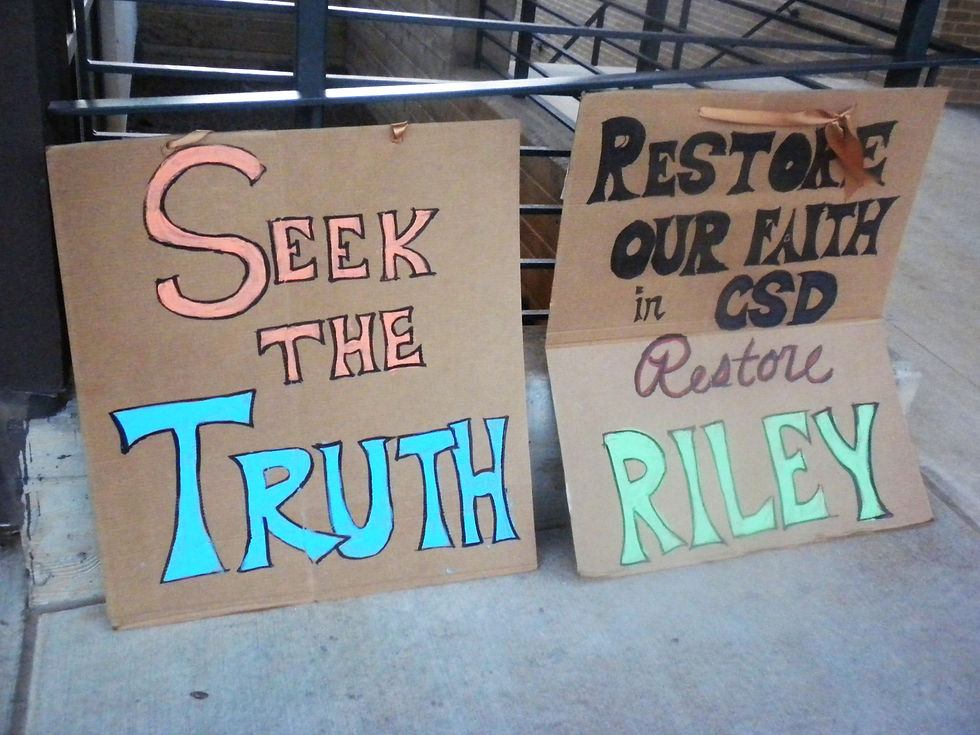 SEEK
THE
TRUTH
RESTORE
OUR FAITH
in CSD
Restore
RILEY